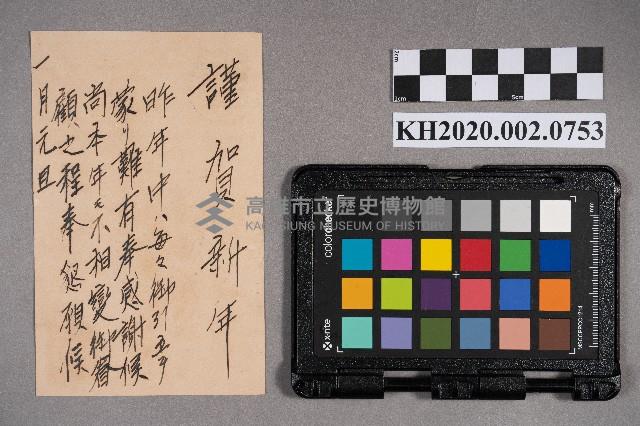 謹賀新年
昨年中ハ毎々御引立ヲ
蒙り難有奉感謝候
尚本年モ不相變御眷
顧之程奉懇願候
一月元旦
KH2020.002.0753
高雄市立歷史博物館
KAOHSIUNG MUSEUM OF HISTORY
colorchecker
x-rite
2cm
1cm
5cm